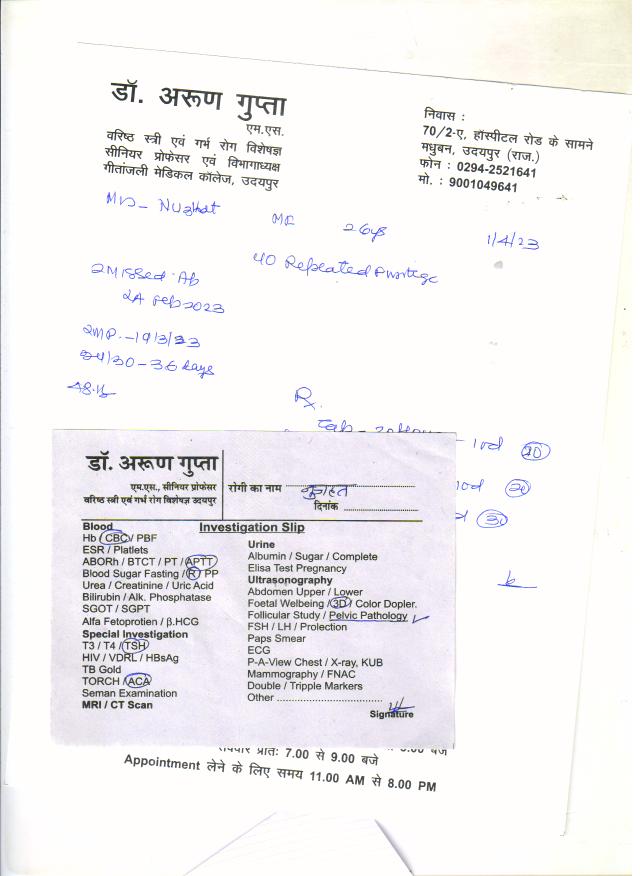 डॉ. अरूण गुप्ता
एम.एस.
वरिष्ठ स्त्री एवं गर्भ रोग विशेषज्ञ
सीनियर प्रोफेसर एवं विभागाध्यक्ष
गीतांजली मेडिकल कॉलेज, उदयपुर
निवास :
70/2-ए, हॉस्पीटल रोड के सामने
मधुबन, उदयपुर (राज.)
फोन : 0294-2521641
मो. : 9001049641
Nuzhat 26ys 1/4/23
Repeated
2 Missed Ab
Feb 2023
19/3/23
36 days
Rx
Tab 10d 20
10d 20
30
डॉ. अरूण गुप्ता
एम.एस., सीनियर प्रोफेसर
वरिष्ठ स्त्री एवं गर्भ रोग विशेषज्ञ उदयपुर
रोगी का नाम नुजहत
दिनांक
Investigation Slip
Blood
Hb / CBC / PBF
ESR / Platlets
ABORh / BTCT / PT / APTT
Blood Sugar Fasting / R / PP
Urea / Creatinine / Uric Acid
Bilirubin / Alk. Phosphatase
SGOT / SGPT
Alfa Fetoprotien / β.HCG
Special Investigation
T3 / T4 / TSH
HIV / VDRL / HBsAg
TB Gold
TORCH / ACA
Seman Examination
MRI / CT Scan
Urine
Albumin / Sugar / Complete
Elisa Test Pregnancy
Ultrasonography
Abdomen Upper / Lower
Foetal Welbeing / 3D / Color Dopler.
Follicular Study / Pelvic Pathology
FSH / LH / Prolection
Paps Smear
ECG
P-A-View Chest / X-ray, KUB
Mammography / FNAC
Double / Tripple Markers
Other
Signature
रविवार प्रातः 7.00 से 9.00 बजे
Appointment लेने के लिए समय 11.00 AM से 8.00 PM